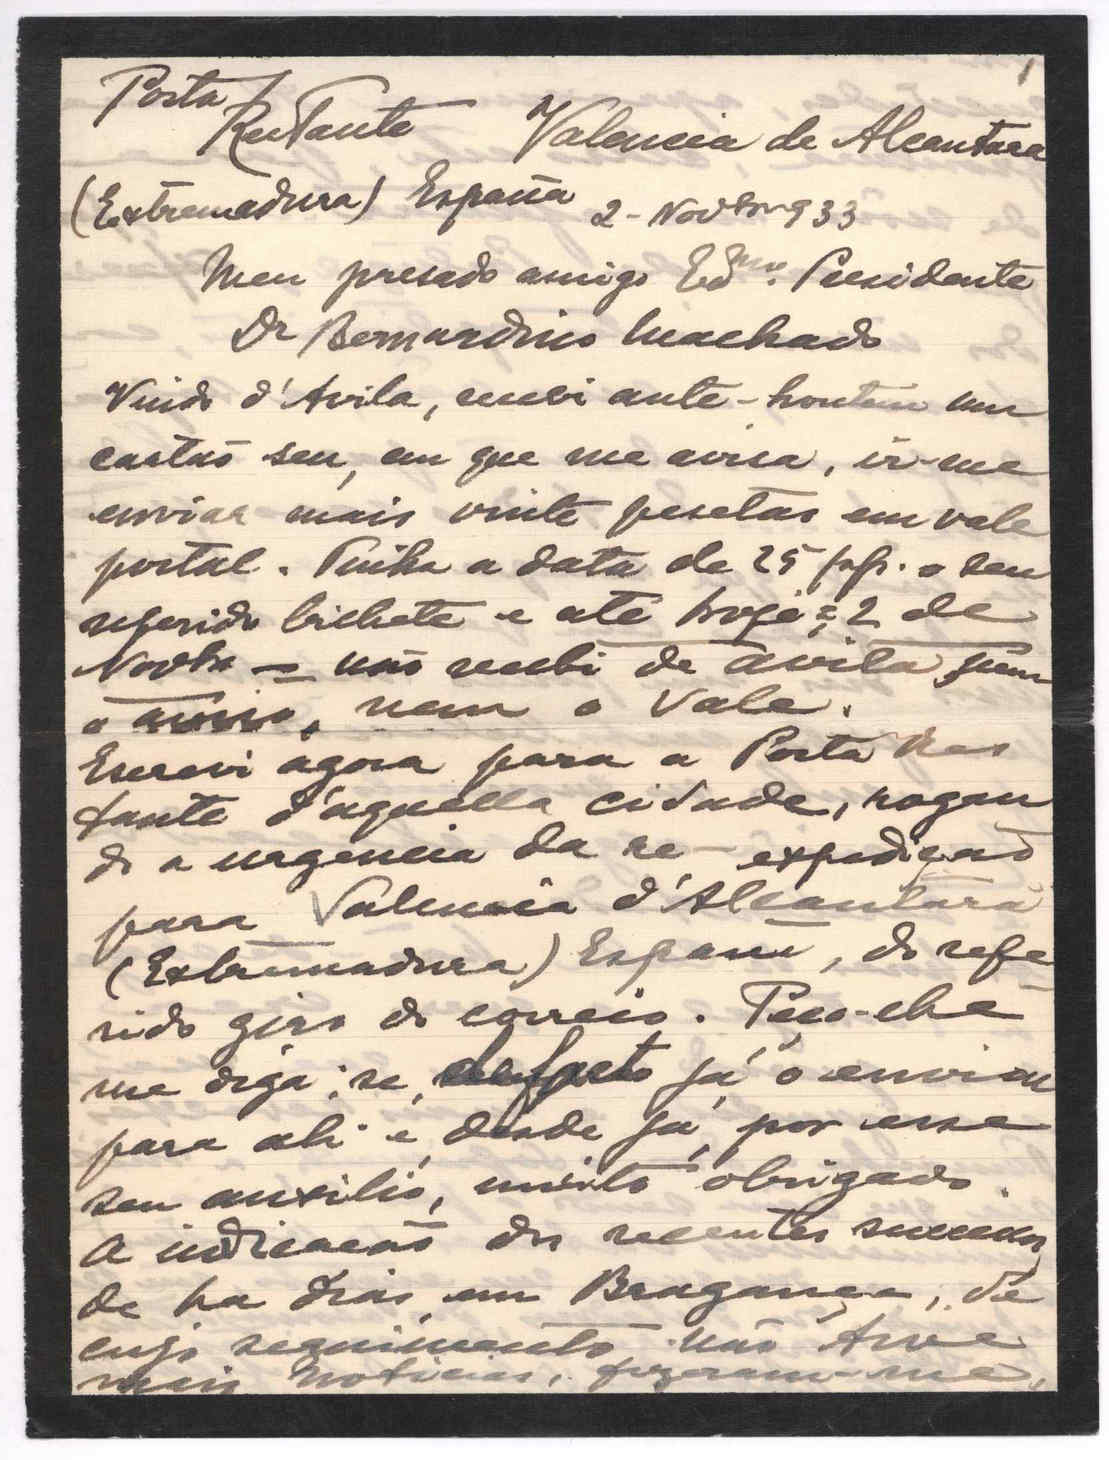 1
Posta
Restante Valencia de Alcantara
(Extremadura) España 2-Novbro 933
Meu presado amigo Exmo. Presidente
Dr Bernardino Machado
Vindo d'Avila, recebi ante-hontem um
cartão seu, em que me avisa, ir-me
enviar mais vinte pesetas em vale
postal. Tinha a data de 25 p.p. o seu
referido bilhete e até hoje = 2 de
Novbro = não recebi de Avila, nem
o aviso, nem o Vale.
Escrevi agora para a Posta Res
tante d'aquella cidade, rogan
do a urgencia da re-expedição
para Valencia d'Alcantara
(Extremadura) España, do refe
rido giro do correio. Peço-lhe
me diga; se, de facto já o enviou
para ali e, desde já, por esse
seu auxilio, muito obrigado.
A indicação dos recentes successos,
de ha dias, em Bragança, de
cujo seguimento não tive
mais noticias, fizeram-me,